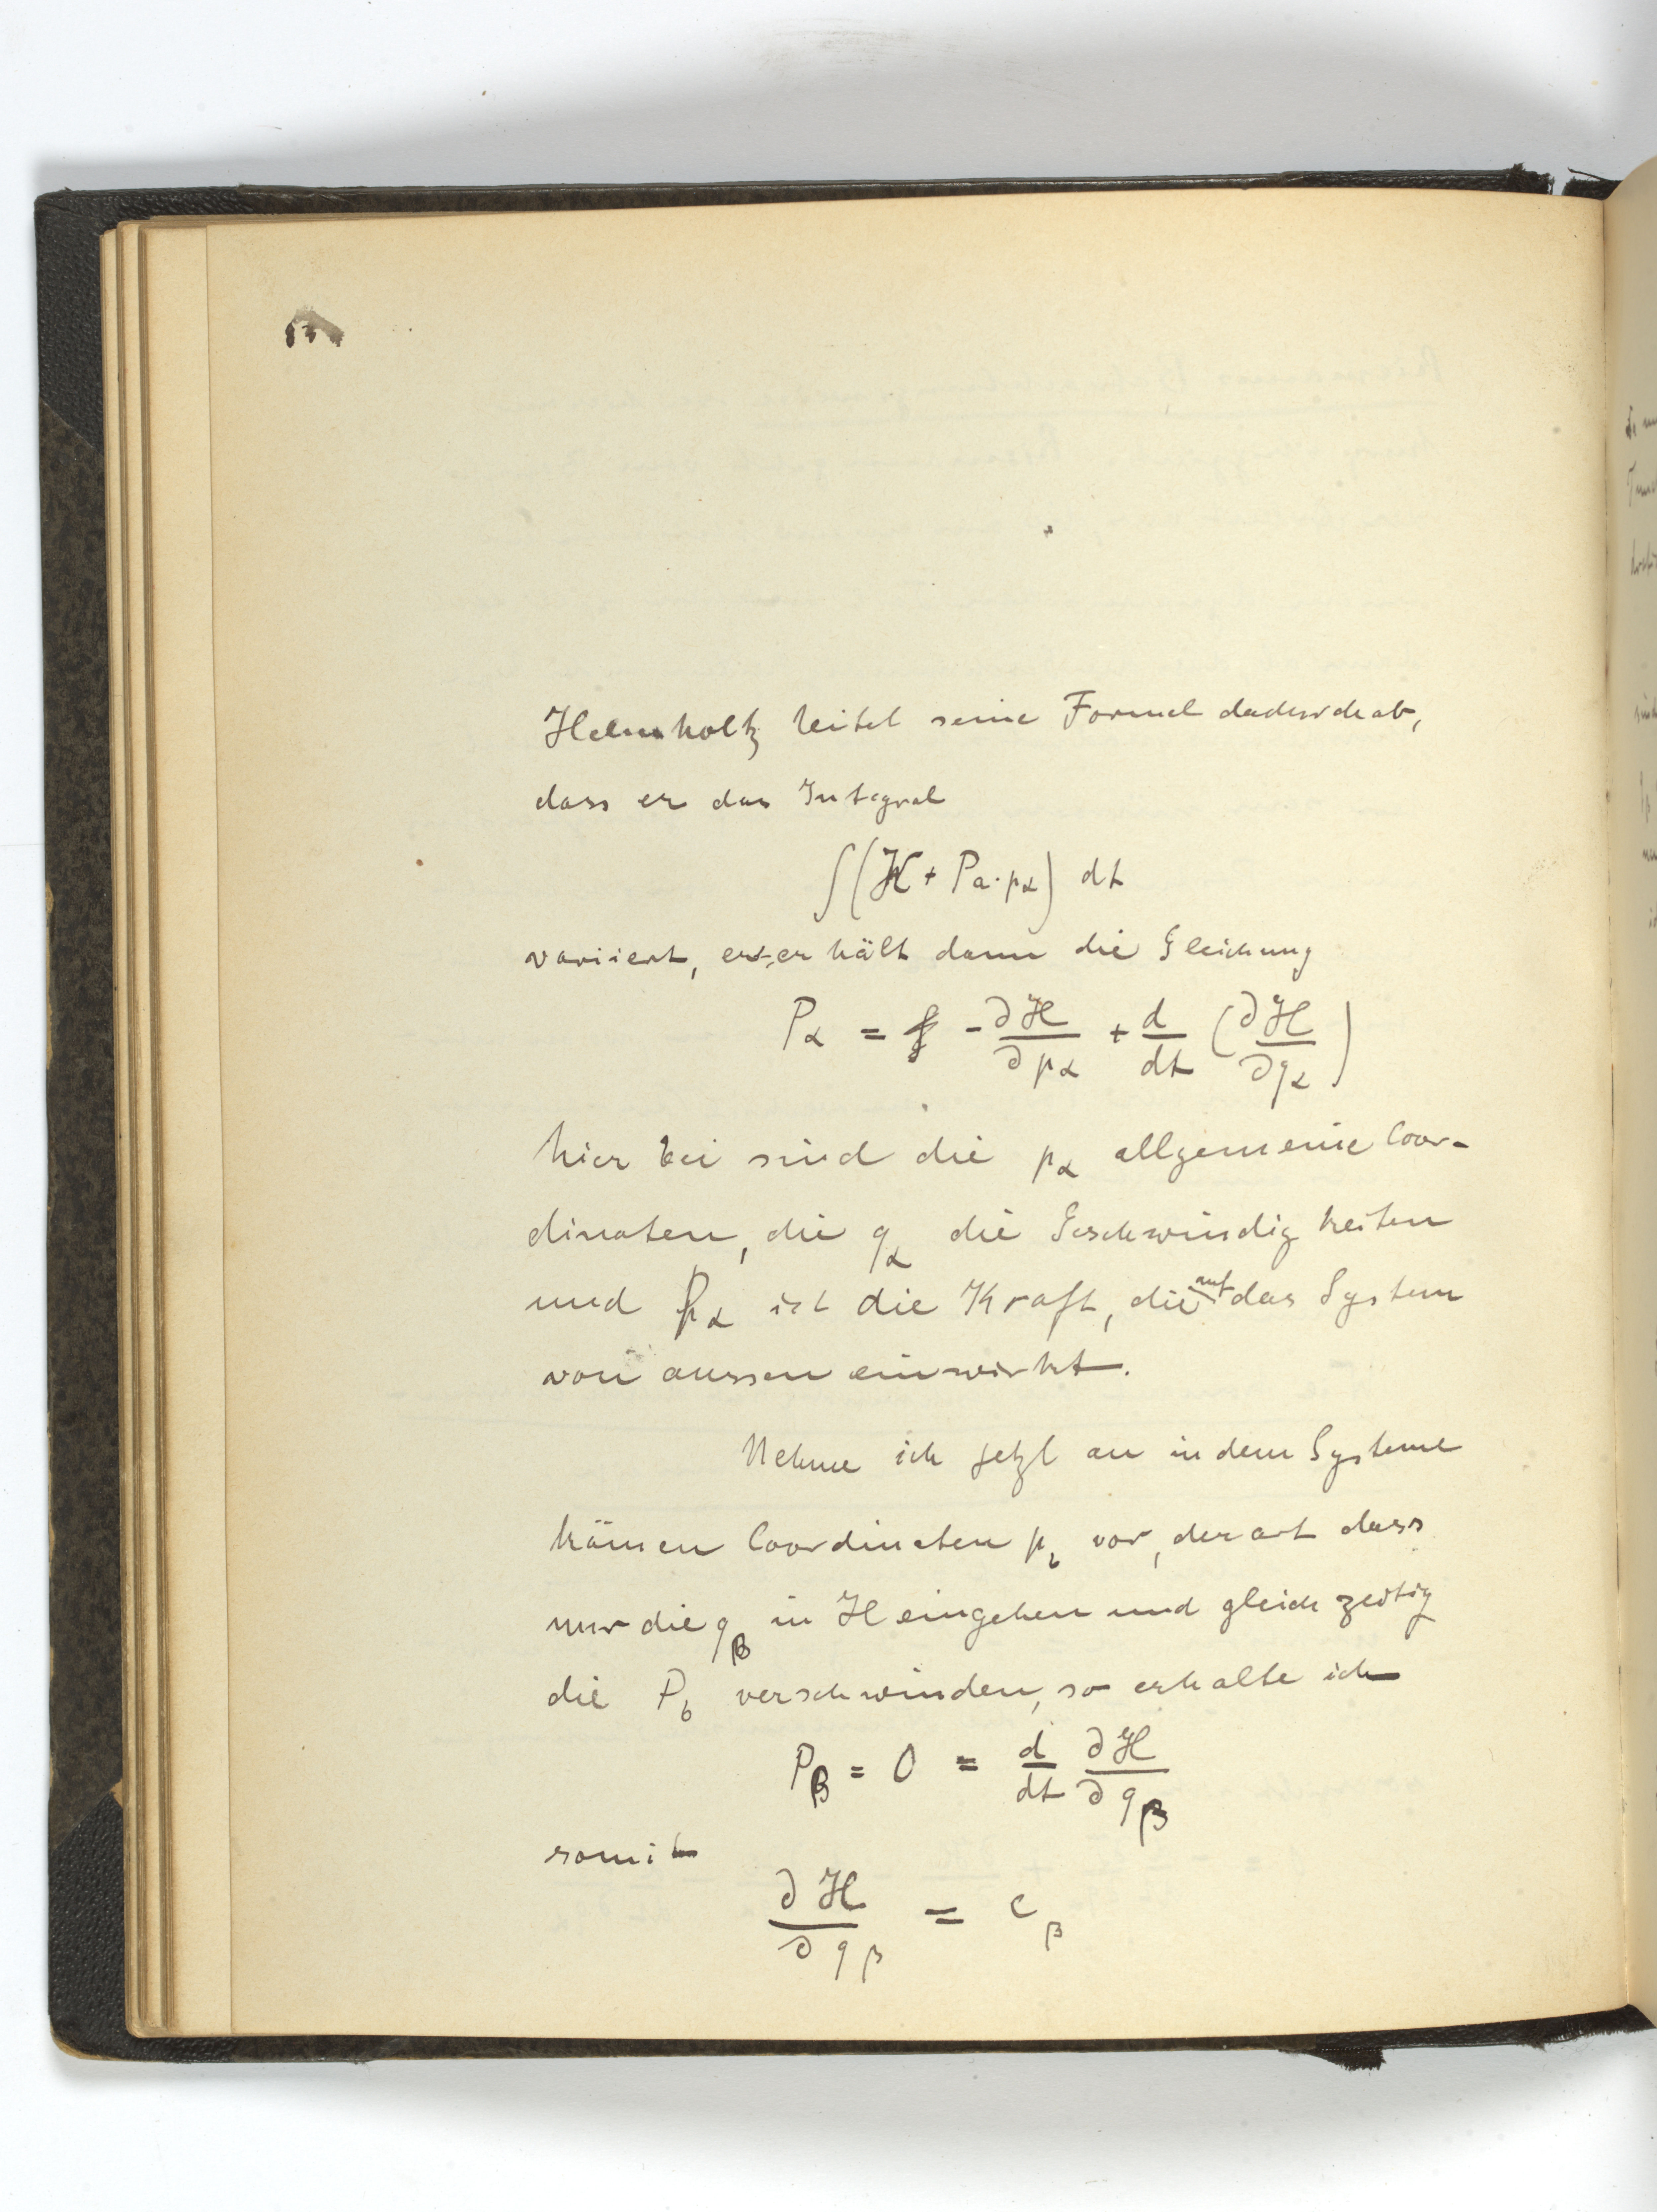 Helmholtz leitet seine Formel dadurch ab,
dass er das Integral
∫(H + Pα·pα) dt
variiert, er erhält dann die Gleichung
Pα = - ∂H/∂pα + d/dt (∂H/∂qα)
hierbei sind die pα allgemeine Coor-
dinaten, die qα die Geschwindigkeiten
und Pα ist die Kraft, die auf das System
von aussen einwirkt.
Nehme ich jetzt an in dem Systeme
kämen Coordinaten p_b vor, derart dass
nur die qβ in H eingehen und gleichzeitig
die P_b verschwinden, so erhalte ich
Pβ = 0 = d/dt ∂H/∂qβ
somit
∂H/∂qβ = cβ